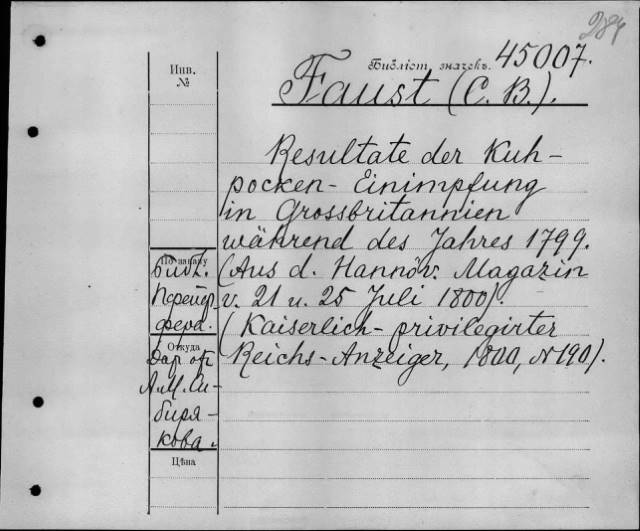 284
Инв. №
Библіот. значекъ. 45007.
Faust (C. B.).
Resultate der Kuh-
pocken-Einimpfung
in Grossbritannien
während des Jahres 1799.
(Aus d. Hannöv. Magazin
v. 21 u. 25 Juli 1800).
(Kaiserlich-privilegirter
Reichs-Anzeiger, 1800, N 190).
Библ.
Откуда
Дар от
А.М. Си-
биря-
кова.
Цѣна